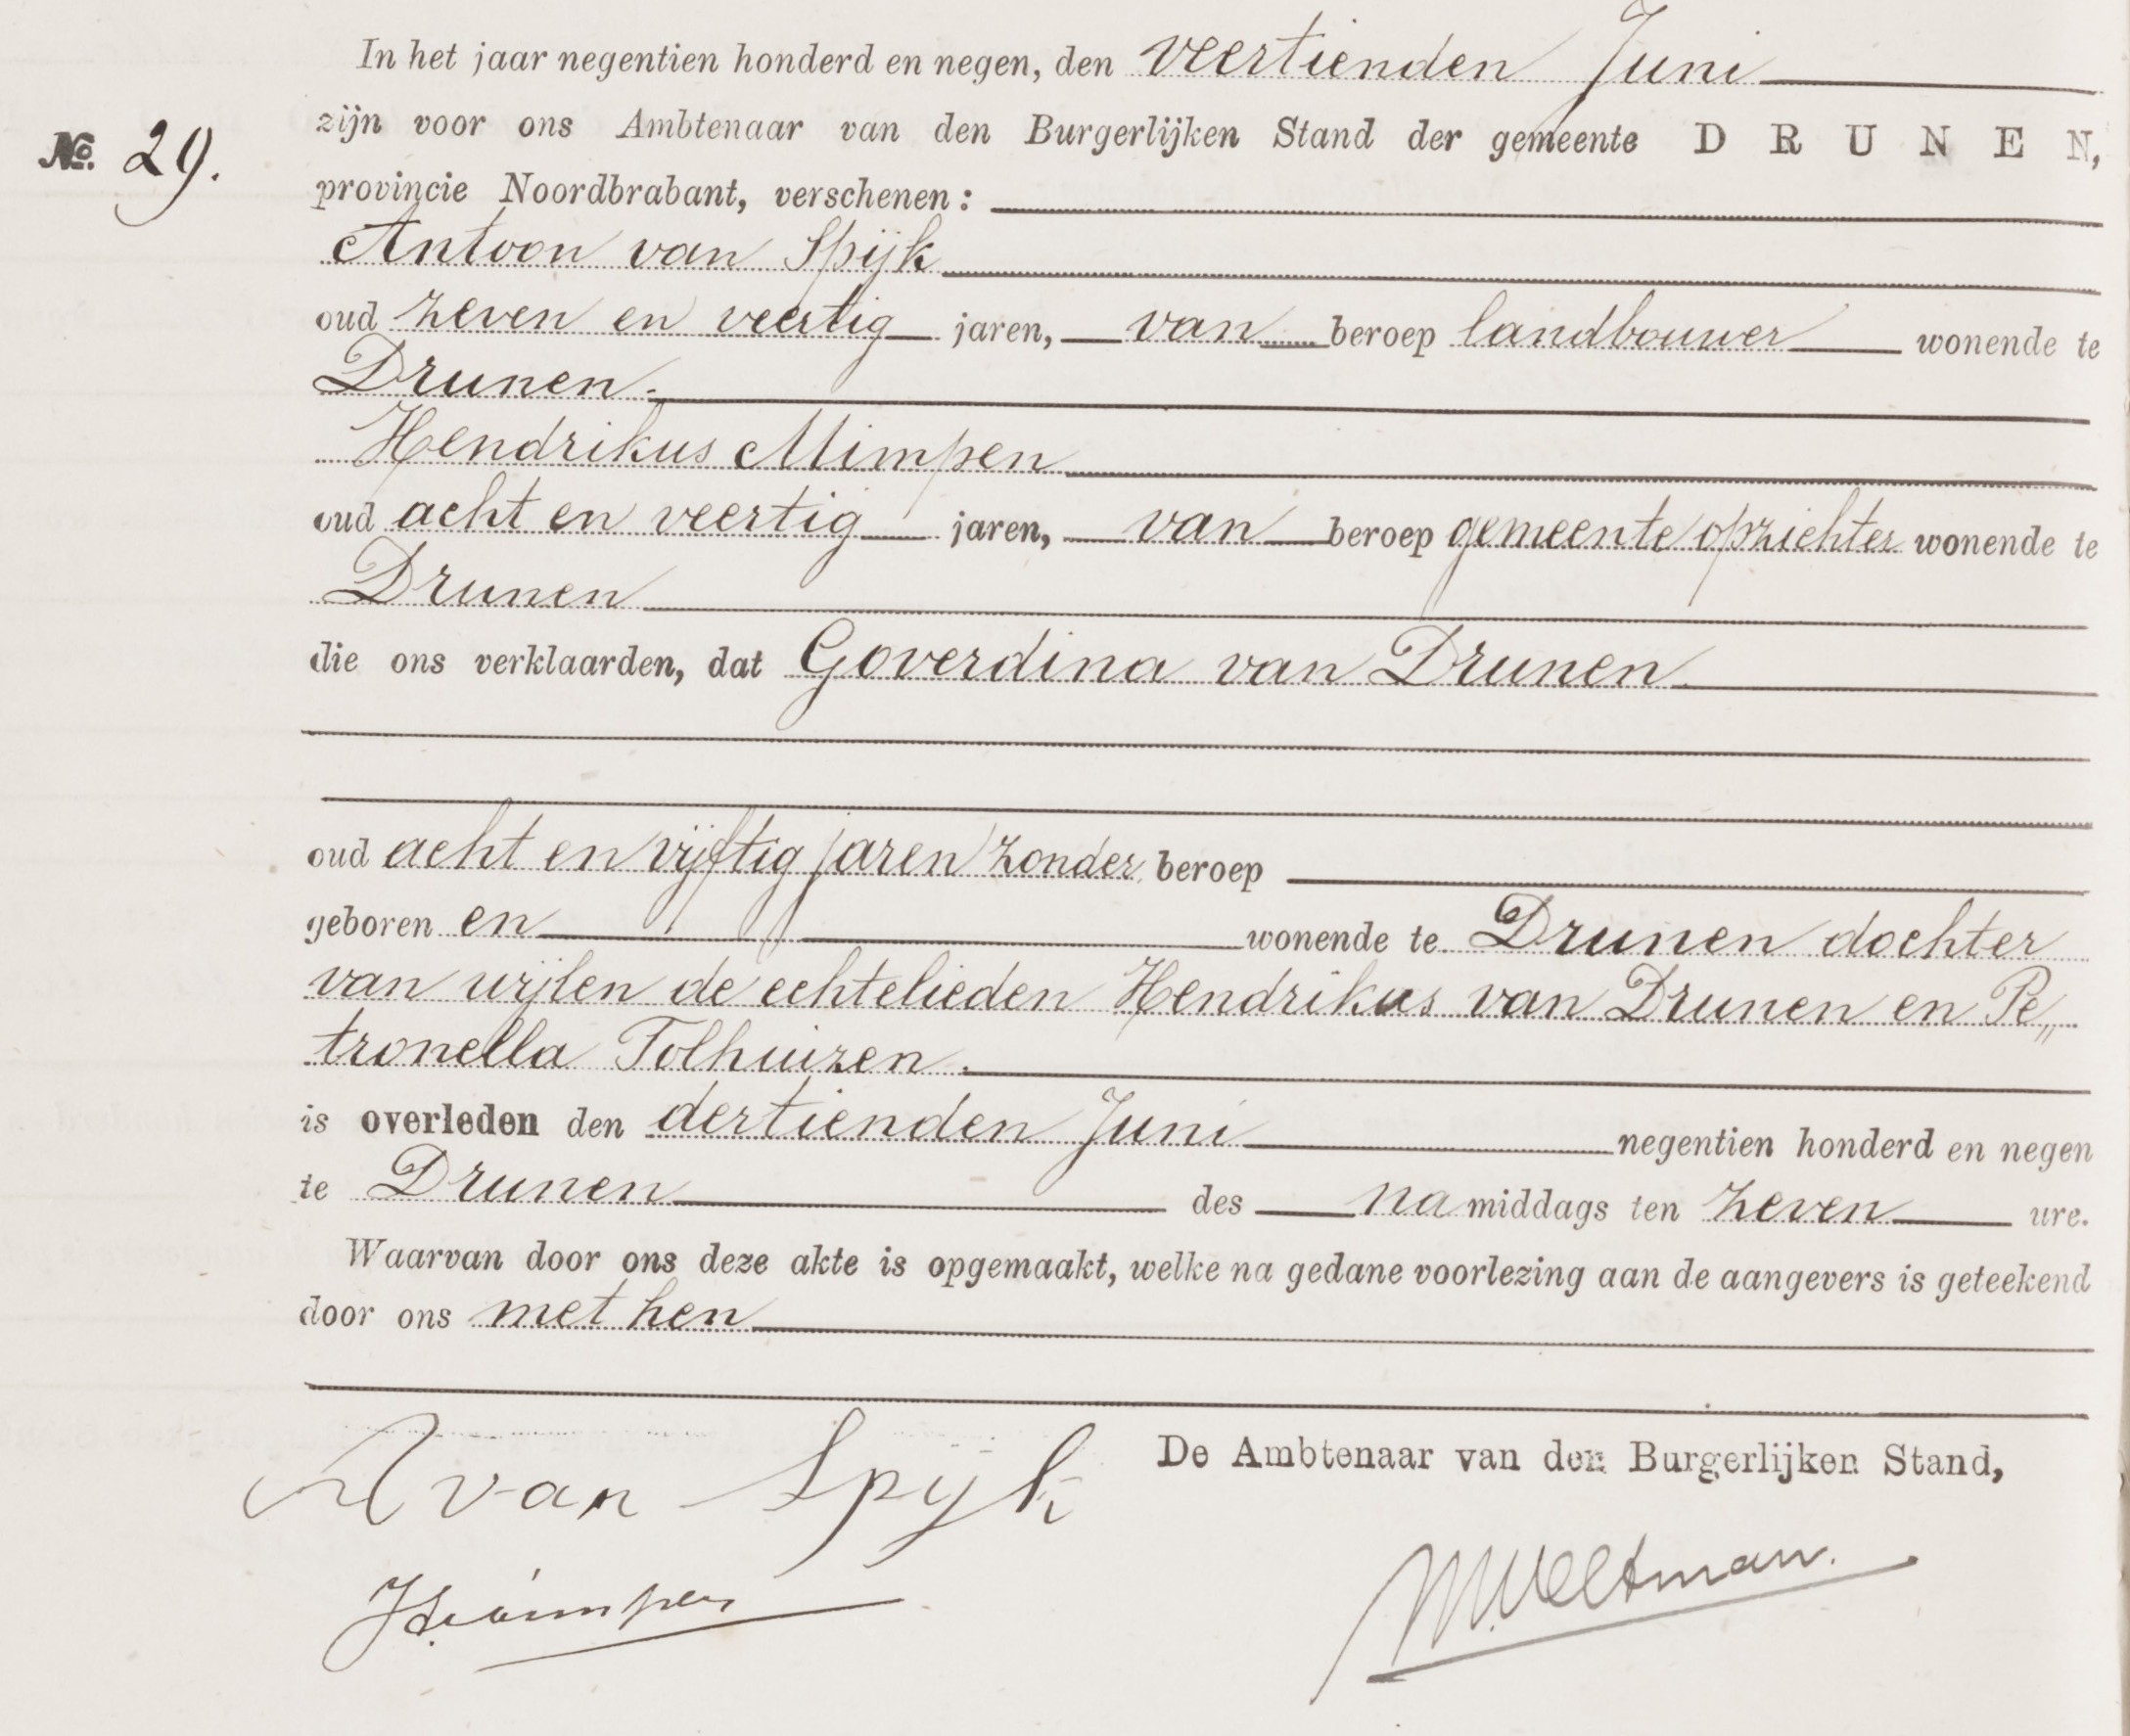 In het jaar negentien honderd en negen, den veertienden Juni
zijn voor ons Ambtenaar van den Burgerlijken Stand der gemeente DRUNEN,
No. 29.
provincie Noordbrabant, verschenen:
Antoon van Spijk
oud zeven en veertig jaren, van beroep landbouwer wonende te
Drunen.
Hendrikus Mimpen
oud acht en veertig jaren, van beroep gemeente opzichter wonende te
Drunen
die ons verklaarden, dat Goverdina van Drunen
oud acht en vijftig jaren zonder beroep
geboren en wonende te Drunen dochter
van wijlen de echtelieden Hendrikus van Drunen en Pe„
tronella Tolhuizen.
is overleden den dertienden Juni negentien honderd en negen
te Drunen des namiddags ten zeven ure.
Waarvan door ons deze akte is opgemaakt, welke na gedane voorlezing aan de aangevers is geteekend
door ons met hen
De Ambtenaar van den Burgerlijken Stand,
A van Spijk
HMimpen
M. Veltman.